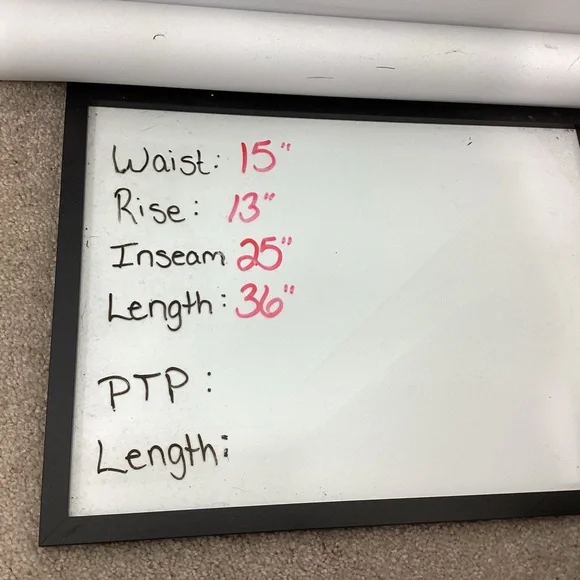 Waist: 15"
Rise: 13"
Inseam 25"
Length: 36"
PTP:
Length: